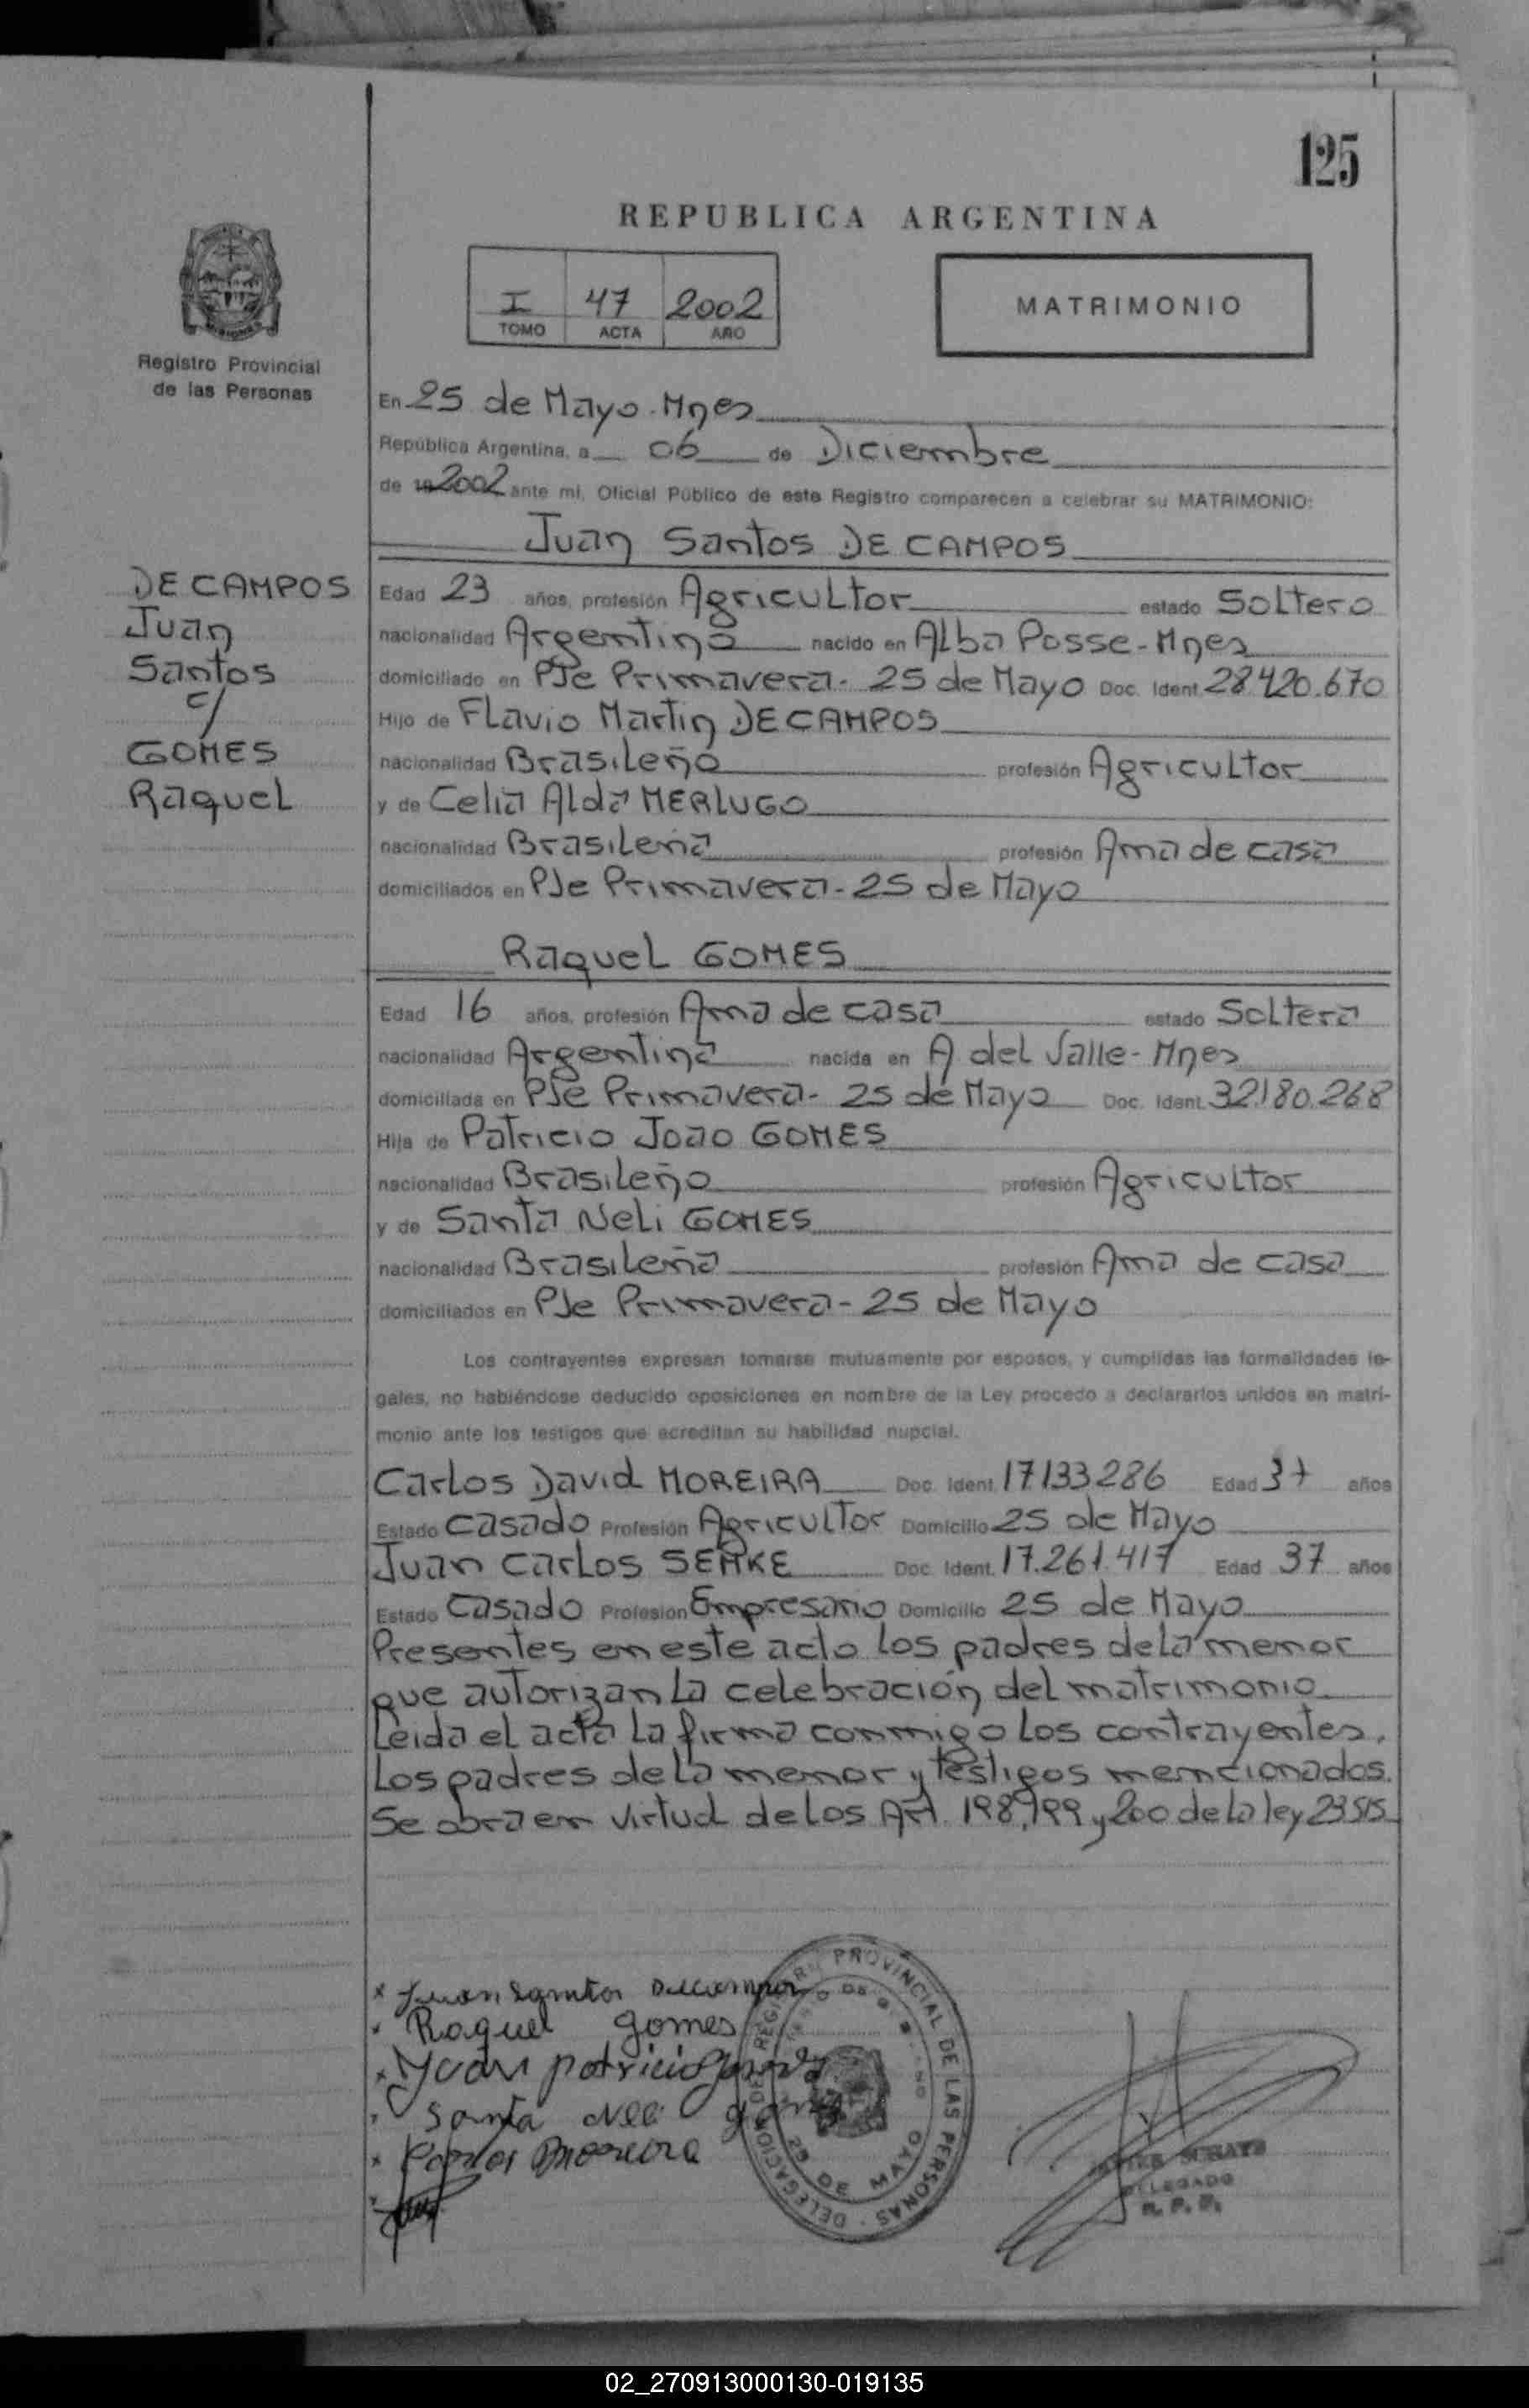 125
REPUBLICA ARGENTINA
I 47 2002
TOMO ACTA AÑO
MATRIMONIO
Registro Provincial
de las Personas
DE CAMPOS
Juan
Santos
c/
GOMES
Raquel
En 25 de Mayo - Mnes
República Argentina, a 06 de Diciembre
de 19 2002 ante mí, Oficial Público de este Registro comparecen a celebrar su MATRIMONIO:
Juan Santos DE CAMPOS
Edad 23 años, profesión Agricultor estado Soltero
nacionalidad Argentina nacido en Alba Posse - Mnes
domiciliado en Pje Primavera - 25 de Mayo Doc. Ident. 28.420.670
Hijo de Flavio Martin DE CAMPOS
nacionalidad Brasileño profesión Agricultor
y de Celia Alda MERLUGO
nacionalidad Brasileña profesión Ama de casa
domiciliados en Pje Primavera - 25 de Mayo
Raquel GOMES
Edad 16 años, profesión Ama de casa estado Soltera
nacionalidad Argentina nacida en A del Valle - Mnes
domiciliada en Pje Primavera - 25 de Mayo Doc. Ident. 32.180.268
Hija de Patricio Joao GOMES
nacionalidad Brasileño profesión Agricultor
y de Santa Neli GOMES
nacionalidad Brasileña profesión Ama de casa
domiciliados en Pje Primavera - 25 de Mayo
Los contrayentes expresan tomarse mutuamente por esposos, y cumplidas las formalidades le-
gales, no habiéndose deducido oposiciones en nombre de la Ley procedo a declararlos unidos en matri-
monio ante los testigos que acreditan su habilidad nupcial.
Carlos David MOREIRA Doc. Ident. 17.133.286 Edad 37 años
Estado Casado Profesión Agricultor Domicilio 25 de Mayo
Juan Carlos SEMKE Doc. Ident. 17.261.417 Edad 37 años
Estado Casado Profesión Empresario Domicilio 25 de Mayo
Presentes en este acto los padres de la menor
que autorizan la celebración del matrimonio
Leida el acta la firma conmigo los contrayentes,
Los padres de la menor y testigos mencionados.
Se obra en virtud de los Art. 198, 199 y 200 de la ley 23.515
x Juan Santos Decampos
x Raquel gomes
x Juan patricio gomes
x Santa Neli gomes
x Carlos Moreira
DELEGACION DE REGISTRO PROVINCIAL DE LAS PERSONAS
25 DE MAYO
DELEGADO
R. P. P.
02_270913000130-019135